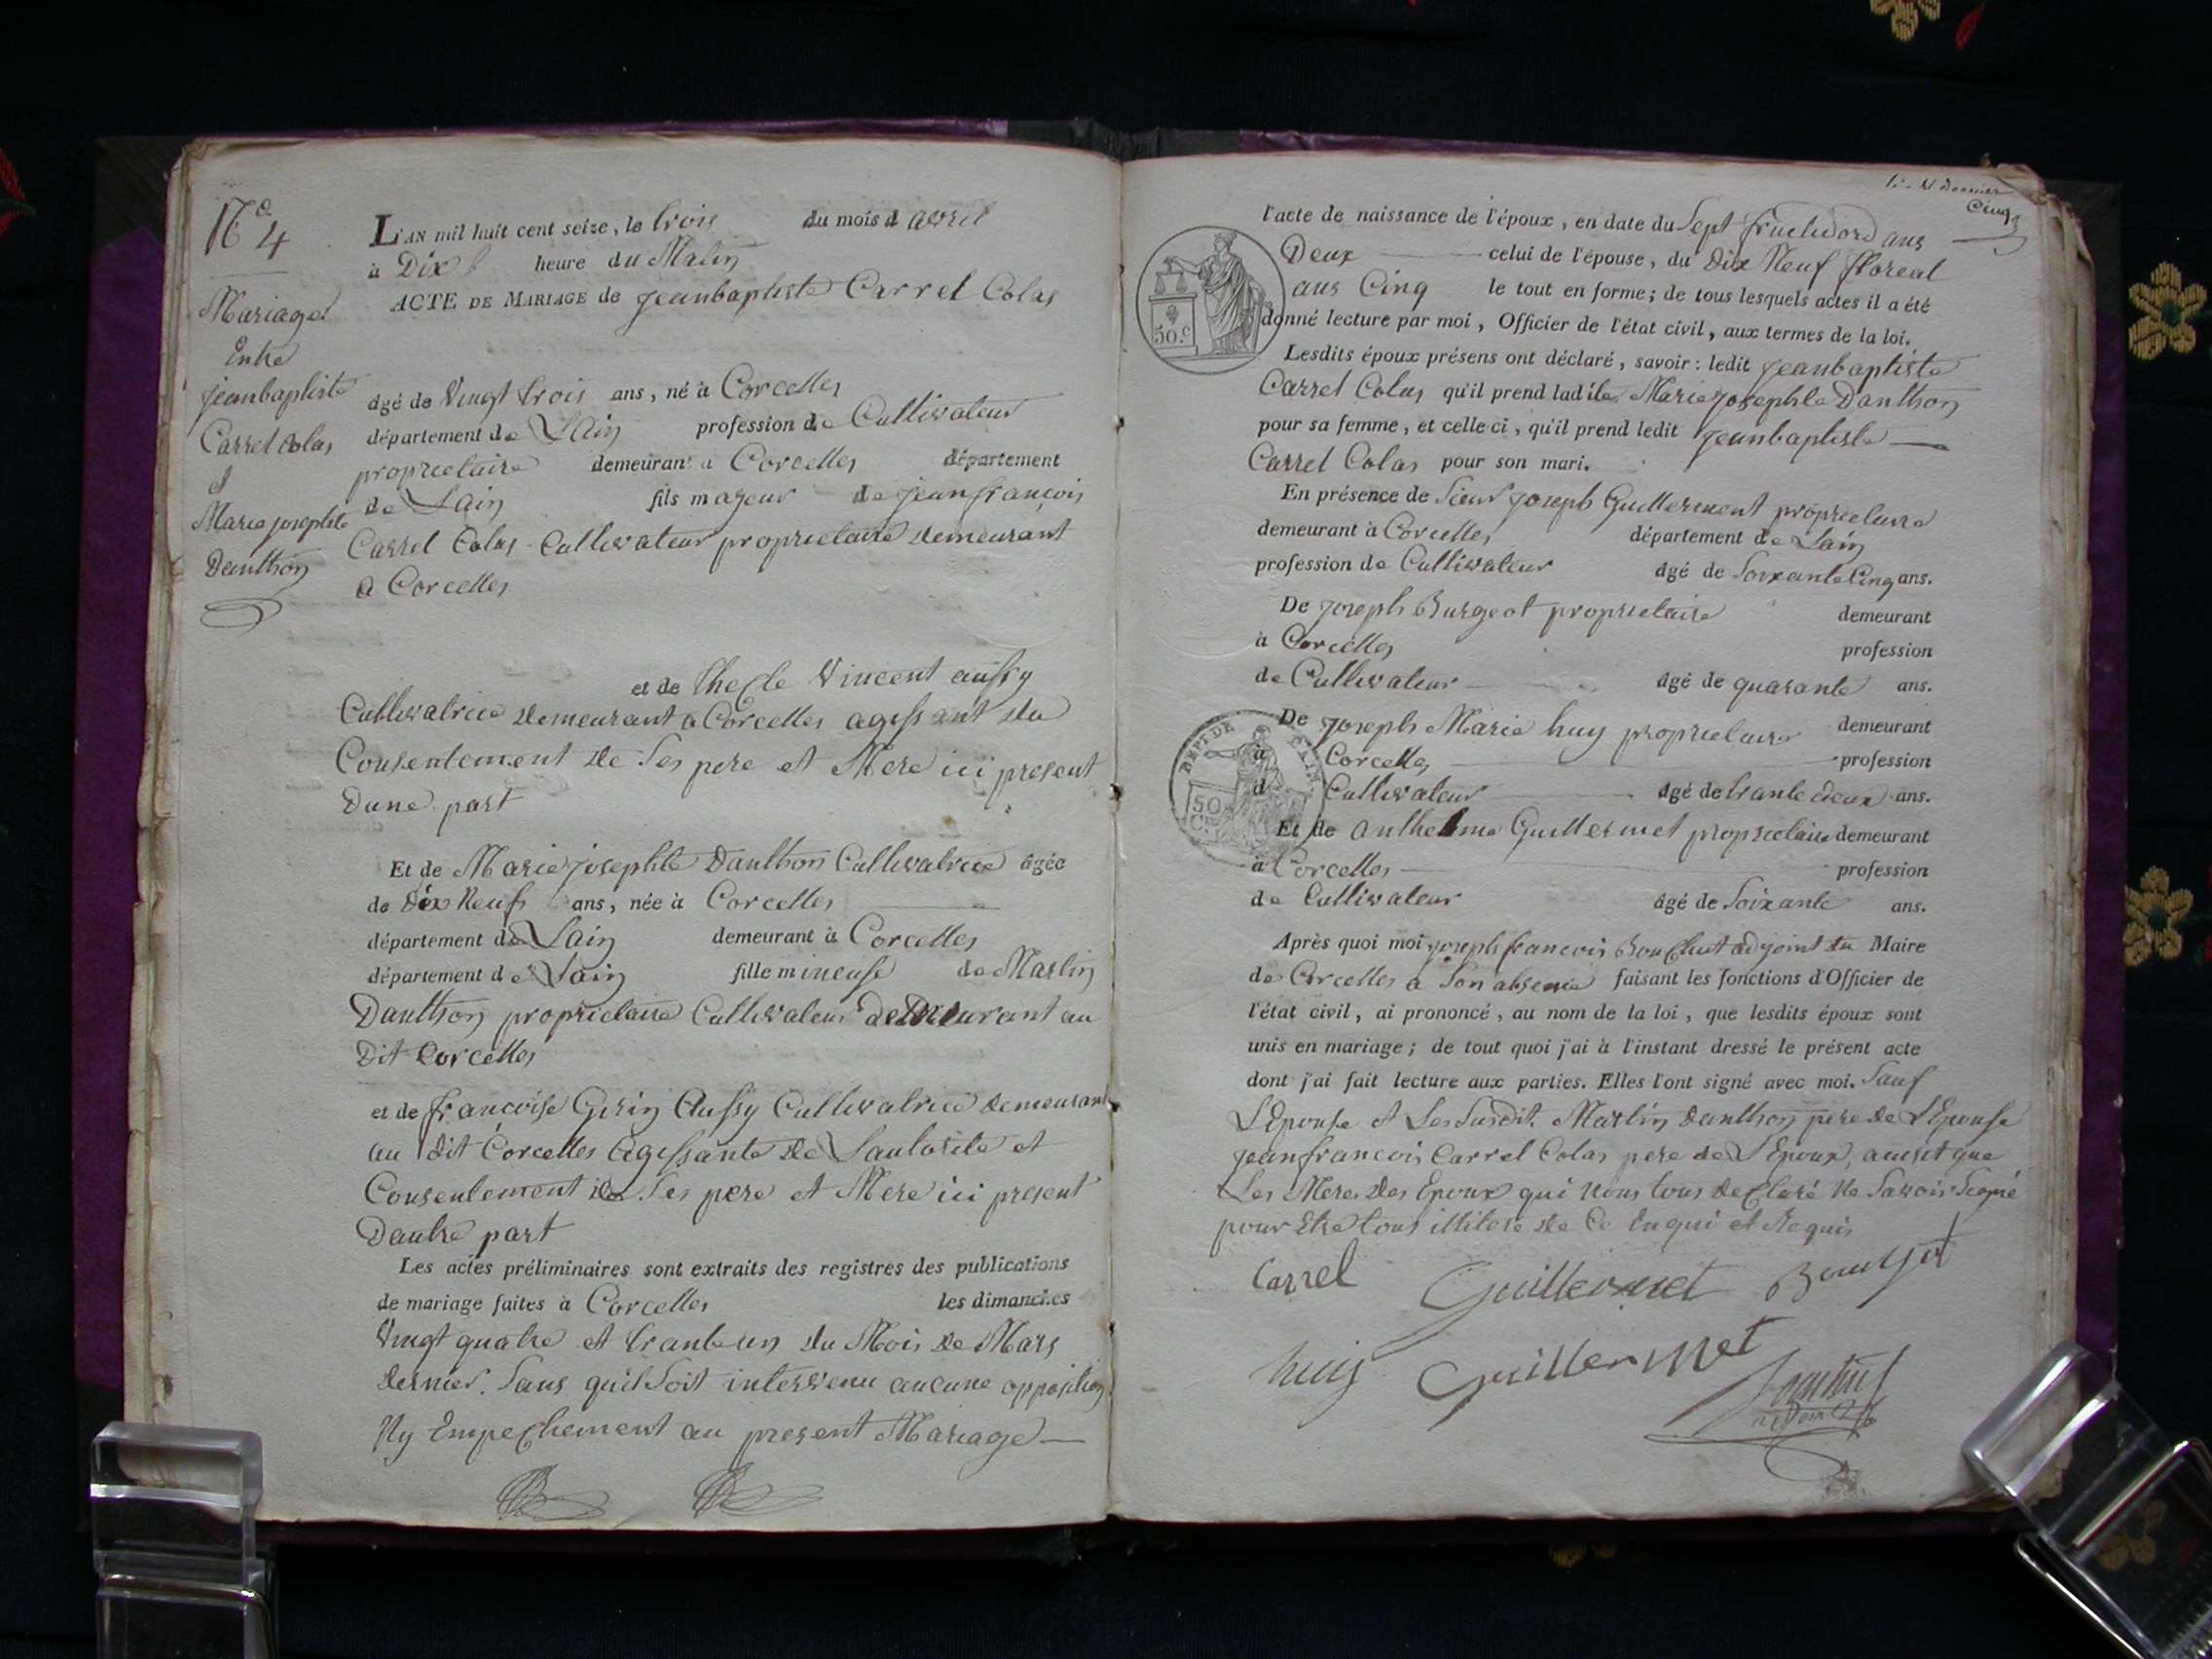 N.o 4
Mariage
Entre
jeanbaptiste
Carrel Colas
et
Marie josephte
Danthon
L'AN mil huit cent seize, le trois du mois d avril
à Dix heure du Matin
ACTE DE MARIAGE de jeanbaptiste Carrel Colas
âgé de Vingt trois ans, né à Corcelles
département de Lain profession de Cultivateur
proprietaire demeurant à Corcelles département
de Lain fils majeur de jean françois
Carrel Colas Cultivateur proprietaire demeurant
a Corcelles
et de thecle Vincent aussy
Cultivatrice demeurant a Corcelles agissant du
Consentement de Ses pere et Mere ici present
Dune part
Et de Marie josephte Danthon Cultivatrice âgée
de Dix Neuf ans, née à Corcelles
département de Lain demeurant à Corcelles
département de Lain fille mineuse de Martin
Danthon proprietaire Cultivateur Demeurant au
Dit Corcelles
et de françoise Gerin Aussy Cultivatrice demeurant
au Dit Corcelles Agissante de Lautorité et
Consentement de Ses pere et Mere ici present
Dautre part
Les actes préliminaires sont extraits des registres des publications
de mariage faites à Corcelles les dimanches
Vingt quatre et trante un du Mois de Mars
dernier. Sans quil Soit intervenu aucune opposition
Ny Empechement au present Mariage
Cinq
l'acte de naissance de l'époux, en date du Sept fructidord ans
Deux celui de l'épouse, du Dix Neuf floreal
ans Cinq le tout en forme; de tous lesquels actes il a été
50.c
donné lecture par moi, Officier de l'état civil, aux termes de la loi.
Lesdits époux présens ont déclaré, savoir: ledit jeanbaptiste
Carrel Colas qu'il prend ladite Marie josephte Danthon
pour sa femme, et celle-ci, qu'il prend ledit jeanbaptiste
Carrel Colas pour son mari.
En présence de Sieur joseph Guillermet proprietaire
demeurant à Corcelles département de Lain
profession de Cultivateur âgé de Soixante Cinq ans.
De joseph Burgeot proprietaire demeurant
à Corcelles profession
de Cultivateur âgé de quarante ans.
De joseph Marie huy proprietaire demeurant
à Corcelles profession
d Cultivateur âgé de trante deux ans.
DEPT DE L'AIN
50
Et de Anthelme Guillermet proprietaire demeurant
à Corcelles profession
de Cultivateur âgé de Soixante ans.
Après quoi moi joseph francois Bouchut adjoint du Maire
de Corcelles a Son absence faisant les fonctions d'Officier de
l'état civil, ai prononcé, au nom de la loi, que lesdits époux sont
unis en mariage; de tout quoi j'ai à l'instant dressé le présent acte
dont j'ai fait lecture aux parties. Elles l'ont signé avec moi. Sauf
LEpouse et Les Susdit. Martin Danthon pere de LEpouse
jean francois Carrel Colas pere de LEpoux, ainsit que
Les Mere des Epoux qui Nous tous declaré Ne Savoir Signé
pour Etre tous illiteré de Ce Enqui et Requis
Carrel Guillermet Bourgeot
huy Guillermet